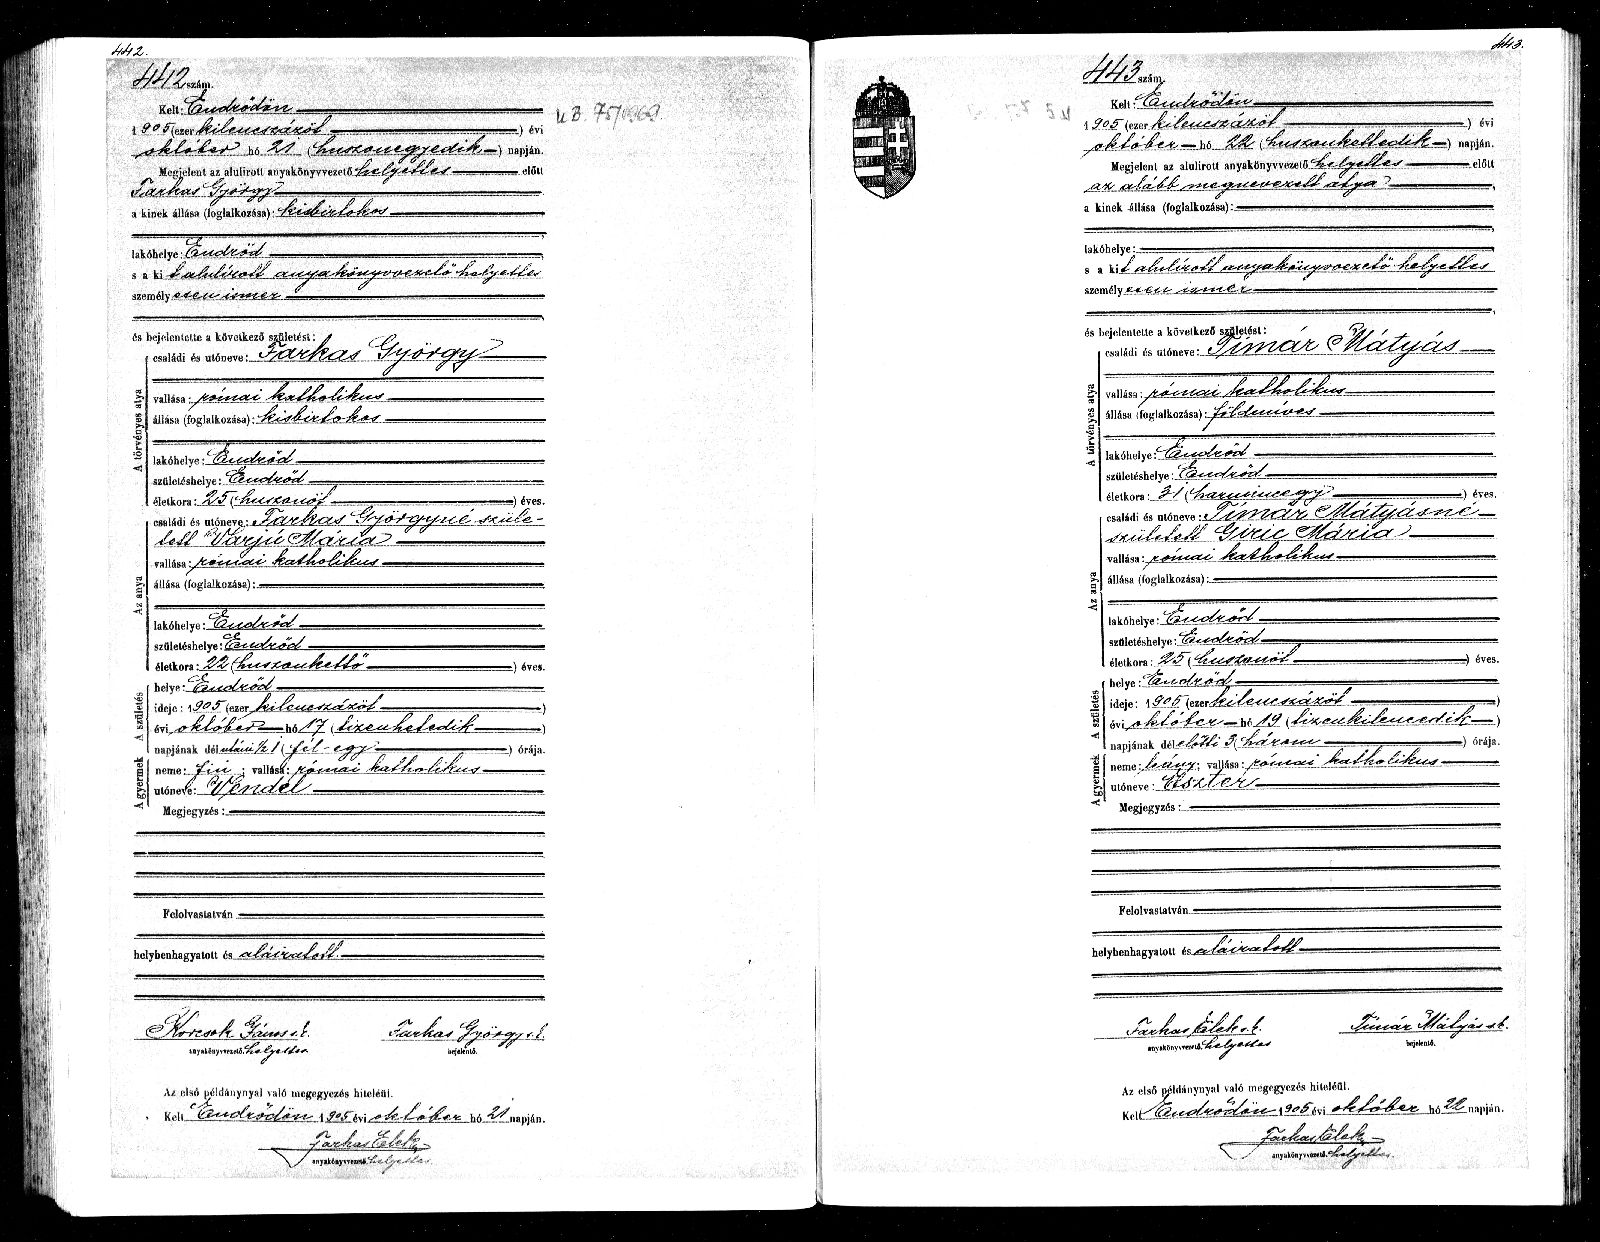 442.
442 szám.
Kelt: Endrődön
1905 (ezer kilencszázöt) évi
október hó 21 (huszonegyedik) napján.
Megjelent az alulirott anyakönyvvezető helyettes előtt
Farkas György
a kinek állása (foglalkozása): kisbirtokos
lakóhelye: Endrőd
s a kit alulírott anyakönyvvezető helyettes
személyesen ismer
és bejelentette a következő születést:
A törvényes atya
családi és utóneve: Farkas György
vallása: római katholikus
állása (foglalkozása): kisbirtokos
lakóhelye: Endrőd
születéshelye: Endrőd
életkora: 25 (huszonöt) éves.
Az anya
családi és utóneve: Farkas Györgyné szüle-
tett Varjú Mária
vallása: római katholikus
állása (foglalkozása):
lakóhelye: Endrőd
születéshelye: Endrőd
életkora: 22 (huszonkettő) éves.
A születés
helye: Endrőd
ideje: 1905 (ezer kilencszázöt)
évi október hó 17 (tizenhetedik)
napjának délutáni ½ 1 (fél-egy) órája.
A gyermek
neme: fiú; vallása: római katholikus
utóneve: Vendel
Megjegyzés:
Felolvastatván
helybenhagyatott és aláiratott
Korcsok János s.k. Farkas György s.k.
anyakönyvvezető. helyettes bejelentő.
Az első példánynyal való megegyezés hiteléül.
Kelt Endrődön 1905 évi október hó 21 napján.
Farkas Elek
anyakönyvvezető. helyettes
443.
443 szám.
Kelt: Endrődön
1905 (ezer kilencszázöt) évi
október hó 22 (huszonkettedik) napján.
Megjelent az alulirott anyakönyvvezető helyettes előtt
az alább megnevezett atya
a kinek állása (foglalkozása):
lakóhelye:
s a kit alulírott anyakönyvvezető helyettes
személyesen ismer
és bejelentette a következő születést:
A törvényes atya
családi és utóneve: Tímár Mátyás
vallása: római katholikus
állása (foglalkozása): földmíves
lakóhelye: Endrőd
születéshelye: Endrőd
életkora: 31 (harmincegy) éves.
Az anya
családi és utóneve: Tímár Mátyásné
született Giric Mária
vallása: római katholikus
állása (foglalkozása):
lakóhelye: Endrőd
születéshelye: Endrőd
életkora: 25 (huszonöt) éves.
A születés
helye: Endrőd
ideje: 1905 (ezer kilencszázöt)
évi október hó 19 (tizenkilencedik)
napjának délelőtti 3 (három) órája.
A gyermek
neme: leány; vallása: római katholikus
utóneve: Eszter
Megjegyzés:
Felolvastatván
helybenhagyatott és aláiratott
Farkas Elek s.k. Tímár Mátyás s.k.
anyakönyvvezető. helyettes bejelentő.
Az első példánynyal való megegyezés hiteléül.
Kelt Endrődön 1905 évi október hó 22 napján.
Farkas Elek
anyakönyvvezető. helyettes